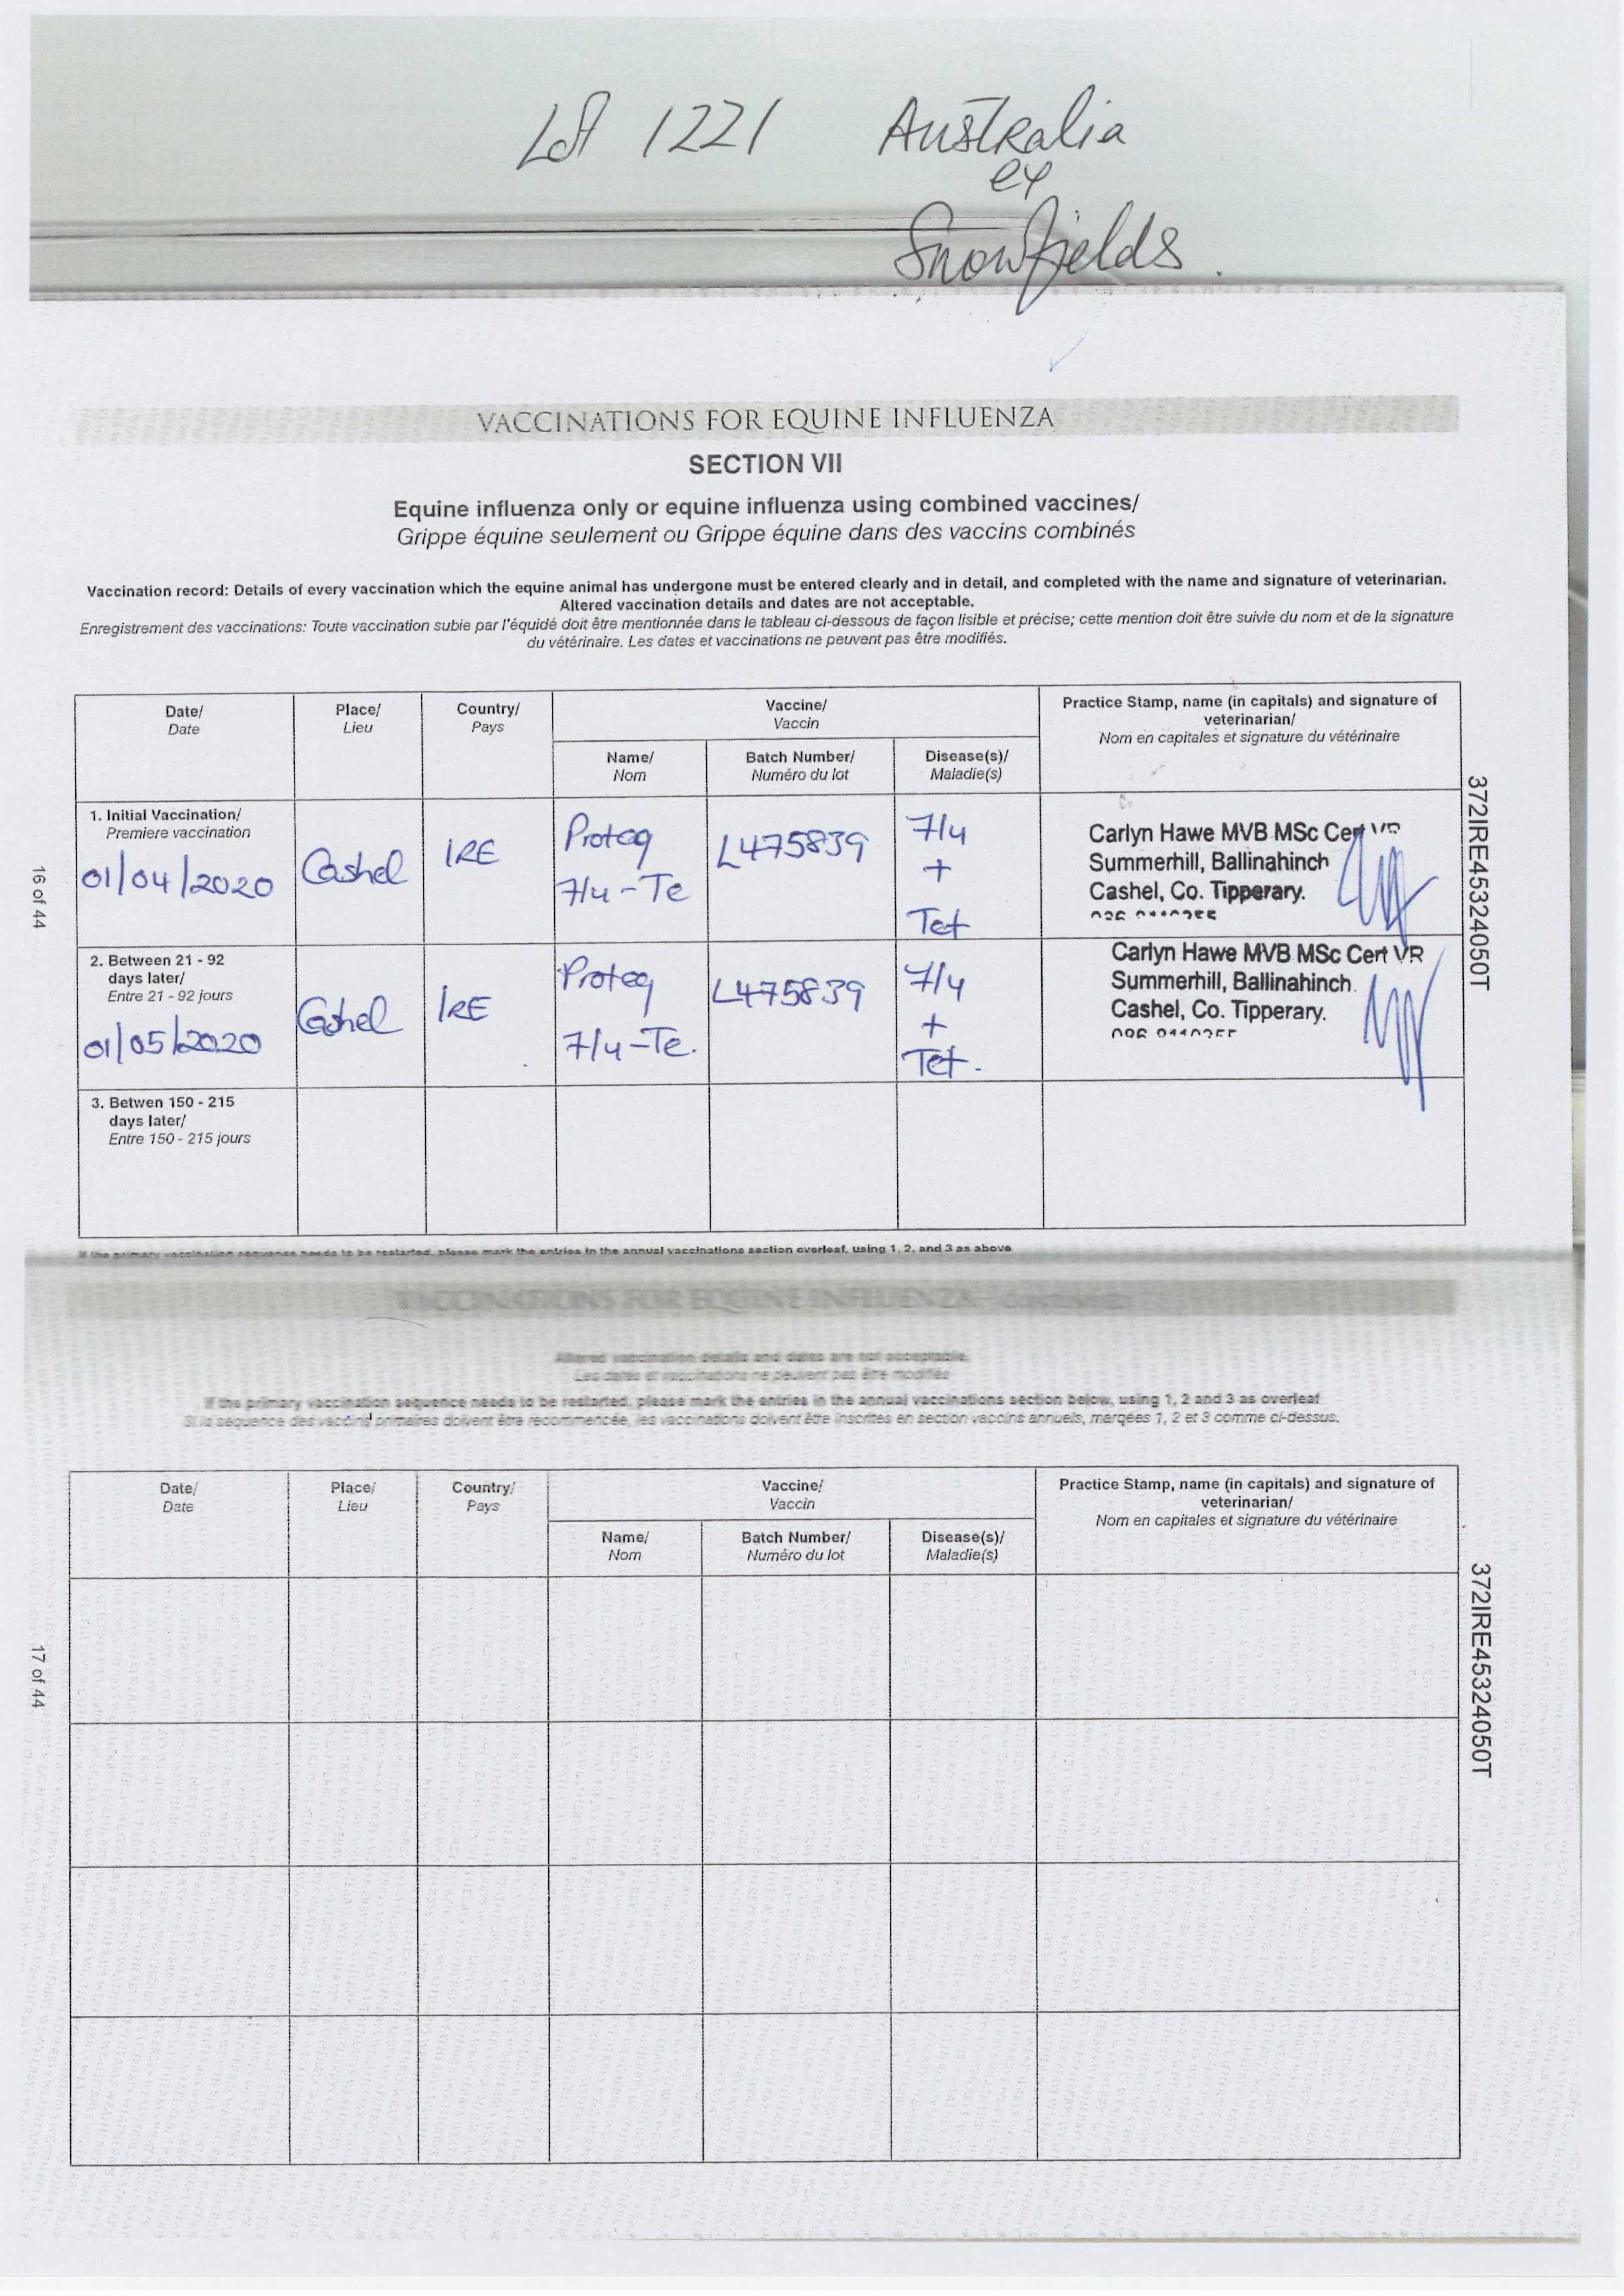 Lot 1221 Australia
ex
Snowfields.
VACCINATIONS FOR EQUINE INFLUENZA
SECTION VII
Equine influenza only or equine influenza using combined vaccines/
Grippe équine seulement ou Grippe équine dans des vaccins combinés
Vaccination record: Details of every vaccination which the equine animal has undergone must be entered clearly and in detail, and completed with the name and signature of veterinarian.
Altered vaccination details and dates are not acceptable.
Enregistrement des vaccinations: Toute vaccination subie par l'équidé doit être mentionnée dans le tableau ci-dessous de façon lisible et précise; cette mention doit être suivie du nom et de la signature
du vétérinaire. Les dates et vaccinations ne peuvent pas être modifiés.
Date/ Place/ Country/ Vaccine/ Practice Stamp, name (in capitals) and signature of
Date Lieu Pays Vaccin veterinarian/
Nom en capitales et signature du vétérinaire
Name/ Batch Number/ Disease(s)/
Nom Numéro du lot Maladie(s)
1. Initial Vaccination/
Premiere vaccination
01/04/2020 Cashel IRE Proteq L475839 7/4
7/4-Te +
Tet
Carlyn Hawe MVB MSc Cert VR
Summerhill, Ballinahinch
Cashel, Co. Tipperary.
2. Between 21 - 92
days later/
Entre 21 - 92 jours
01/05/2020 Cashel IRE Proteq L475839 7/4
7/4-Te. +
Tet.
Carlyn Hawe MVB MSc Cert VR
Summerhill, Ballinahinch.
Cashel, Co. Tipperary.
3. Betwen 150 - 215
days later/
Entre 150 - 215 jours
If the primary vaccination sequence needs to be restarted, please mark the entries in the annual vaccinations section overleaf, using 1, 2, and 3 as above
16 of 44
372IRE45324050T
VACCINATIONS FOR EQUINE INFLUENZA
Altered vaccination details and dates are not acceptable.
Les dates et vaccinations ne peuvent pas être modifiés
If the primary vaccination sequence needs to be restarted, please mark the entries in the annual vaccinations section below, using 1, 2 and 3 as overleaf
Si la séquence des vaccins primaires doivent être recommencée, les vaccinations doivent être inscrites en section vaccins annuels, marqées 1, 2 et 3 comme ci-dessus.
Date/ Place/ Country/ Vaccine/ Practice Stamp, name (in capitals) and signature of
Date Lieu Pays Vaccin veterinarian/
Nom en capitales et signature du vétérinaire
Name/ Batch Number/ Disease(s)/
Nom Numéro du lot Maladie(s)
17 of 44
372IRE45324050T